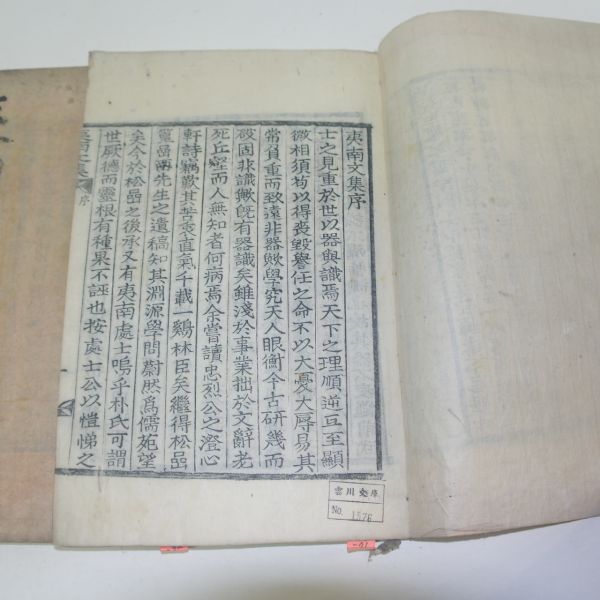 夷南文集序
士之見重於世以器與識焉天下之理順逆亘至顯
微相須苟以得喪毀譽任之命不以大憂大辱易其
常負重而致遠非器歟學究天人眼衡今古研幾而
破固非識歟旣有器識矣雖淺於事業拙於文辭老
死丘壑而人無知者何病焉余嘗讀忠烈公之澄心
軒詩竊歎其苦秀直氣千載一鷄林臣矣繼得松嵒
篁嵒兩先生之遺稿知其淵源學問蔚然爲儒苑望
矣今於松嵒之後承又有夷南處士嗚乎朴氏可謂
世厥德而靈根有種果不誣也按處士公以愷悌之
夷南文集 序
雲川文庫
No. 1576
-01
-01